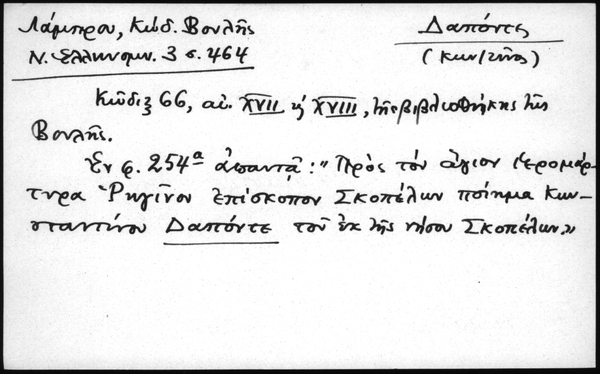 Λάμπρου, Κώδ. Βουλῆς
Ν. Ἑλληνομν. 3 σ. 464
Δαπόντε
(Κων/τῖνος)
Κῶδιξ 66, αἰ. XVII ἢ XVIII, τῆς βιβλιοθήκης τῆς
Βουλῆς.
Ἐν φ. 254ᵃ ἀπαντᾷ: "Πρὸς τὸν ἅγιον ἱερομάρ-
τυρα Ῥηγῖνον ἐπίσκοπον Σκοπέλων ποίημα Κων-
σταντίνου Δαπόντε τοῦ ἐκ τῆς νήσου Σκοπέλων.»